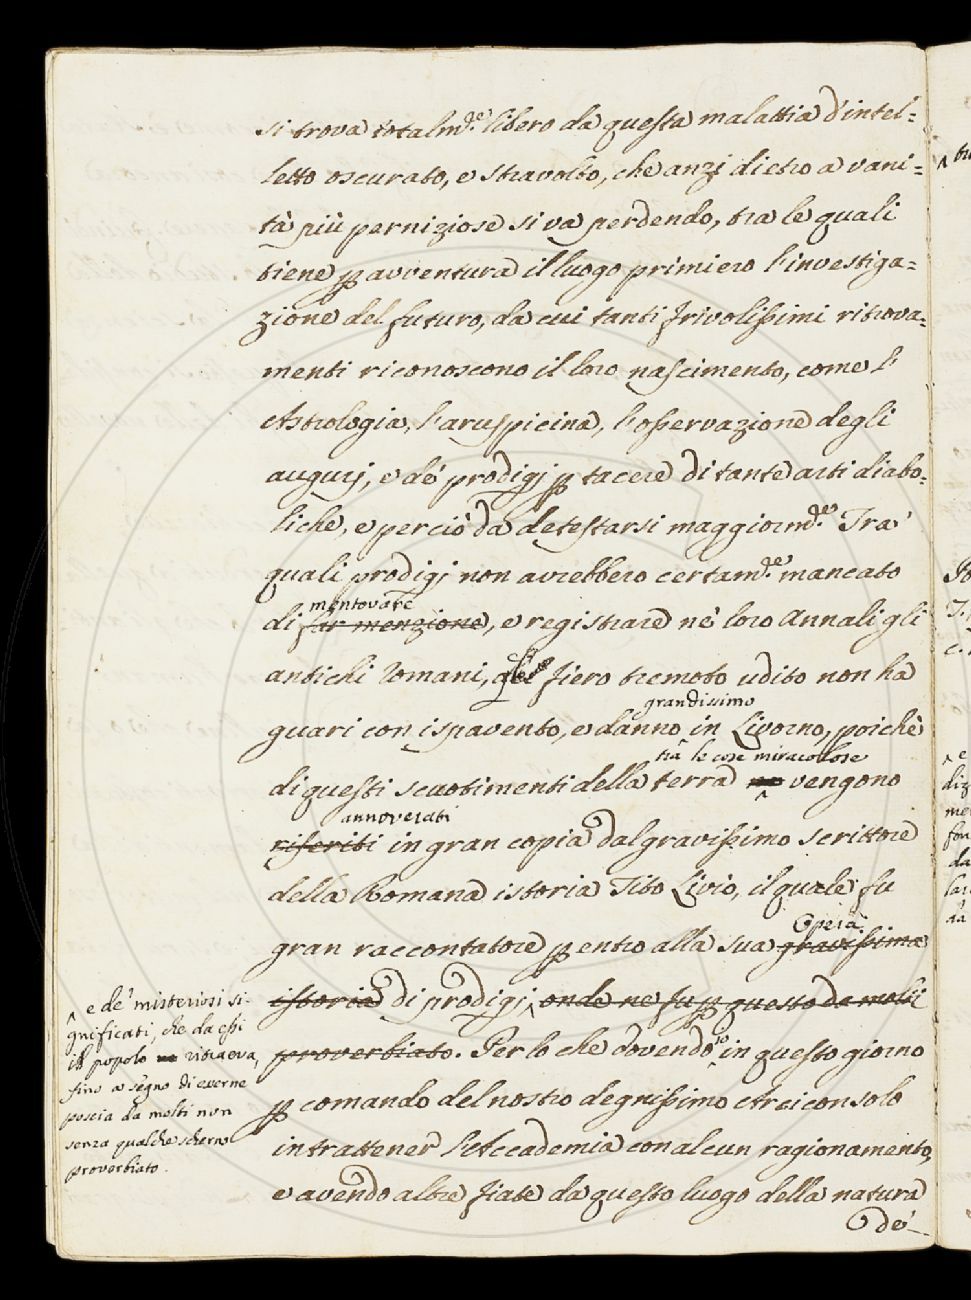 si trova totalm.te libero da questa malattia d'intel=
letto oscurato, e stravolto, che anzi dietro a vani=
tà più perniziose si va perdendo, tra le quali
tiene p avventura il luogo primiero l'investiga=
zione del futuro, da cui tanti frivolissimi ritrova=
menti riconoscono il loro nascimento, come l'
Astrologia, l'aruspicina, l'osservazione degli
augurj, e de' prodigj p tacere di tante arti diabo=
liche, e perciò da detestarsi maggiorm.te Tra'
quali prodigj non avrebbero certam.te mancato
mentovare
di far menzione, e registrare ne' loro Annali gli
antichi Romani, del fiero tremoto udito non ha
grandissimo
guari con ispavento, e danno in Livorno, poichè
trà le cose miracolose
di questi scuotimenti della terra vengono
annoverati
riferiti in gran copia dal gravissimo scrittore
della Romana istoria Tito Livio, il quale fu
Opera
gran raccontatore p entro alla sua gravissima
istoria di prodigj, onde ne fu p questo da molti
proverbiato. Per lo che dovendo io in questo giorno
p comando del nostro degnissimo Arciconsolo
intrattener l'Accademia con alcun ragionamento,
e avendo altre fiate da questo luogo della natura
de'
e de' misteriosi si-
gnificati, che da essi
il popolo ritraeva,
fino a segno di everne
poscia da molti non
senza qualche scherno
proverbiato.